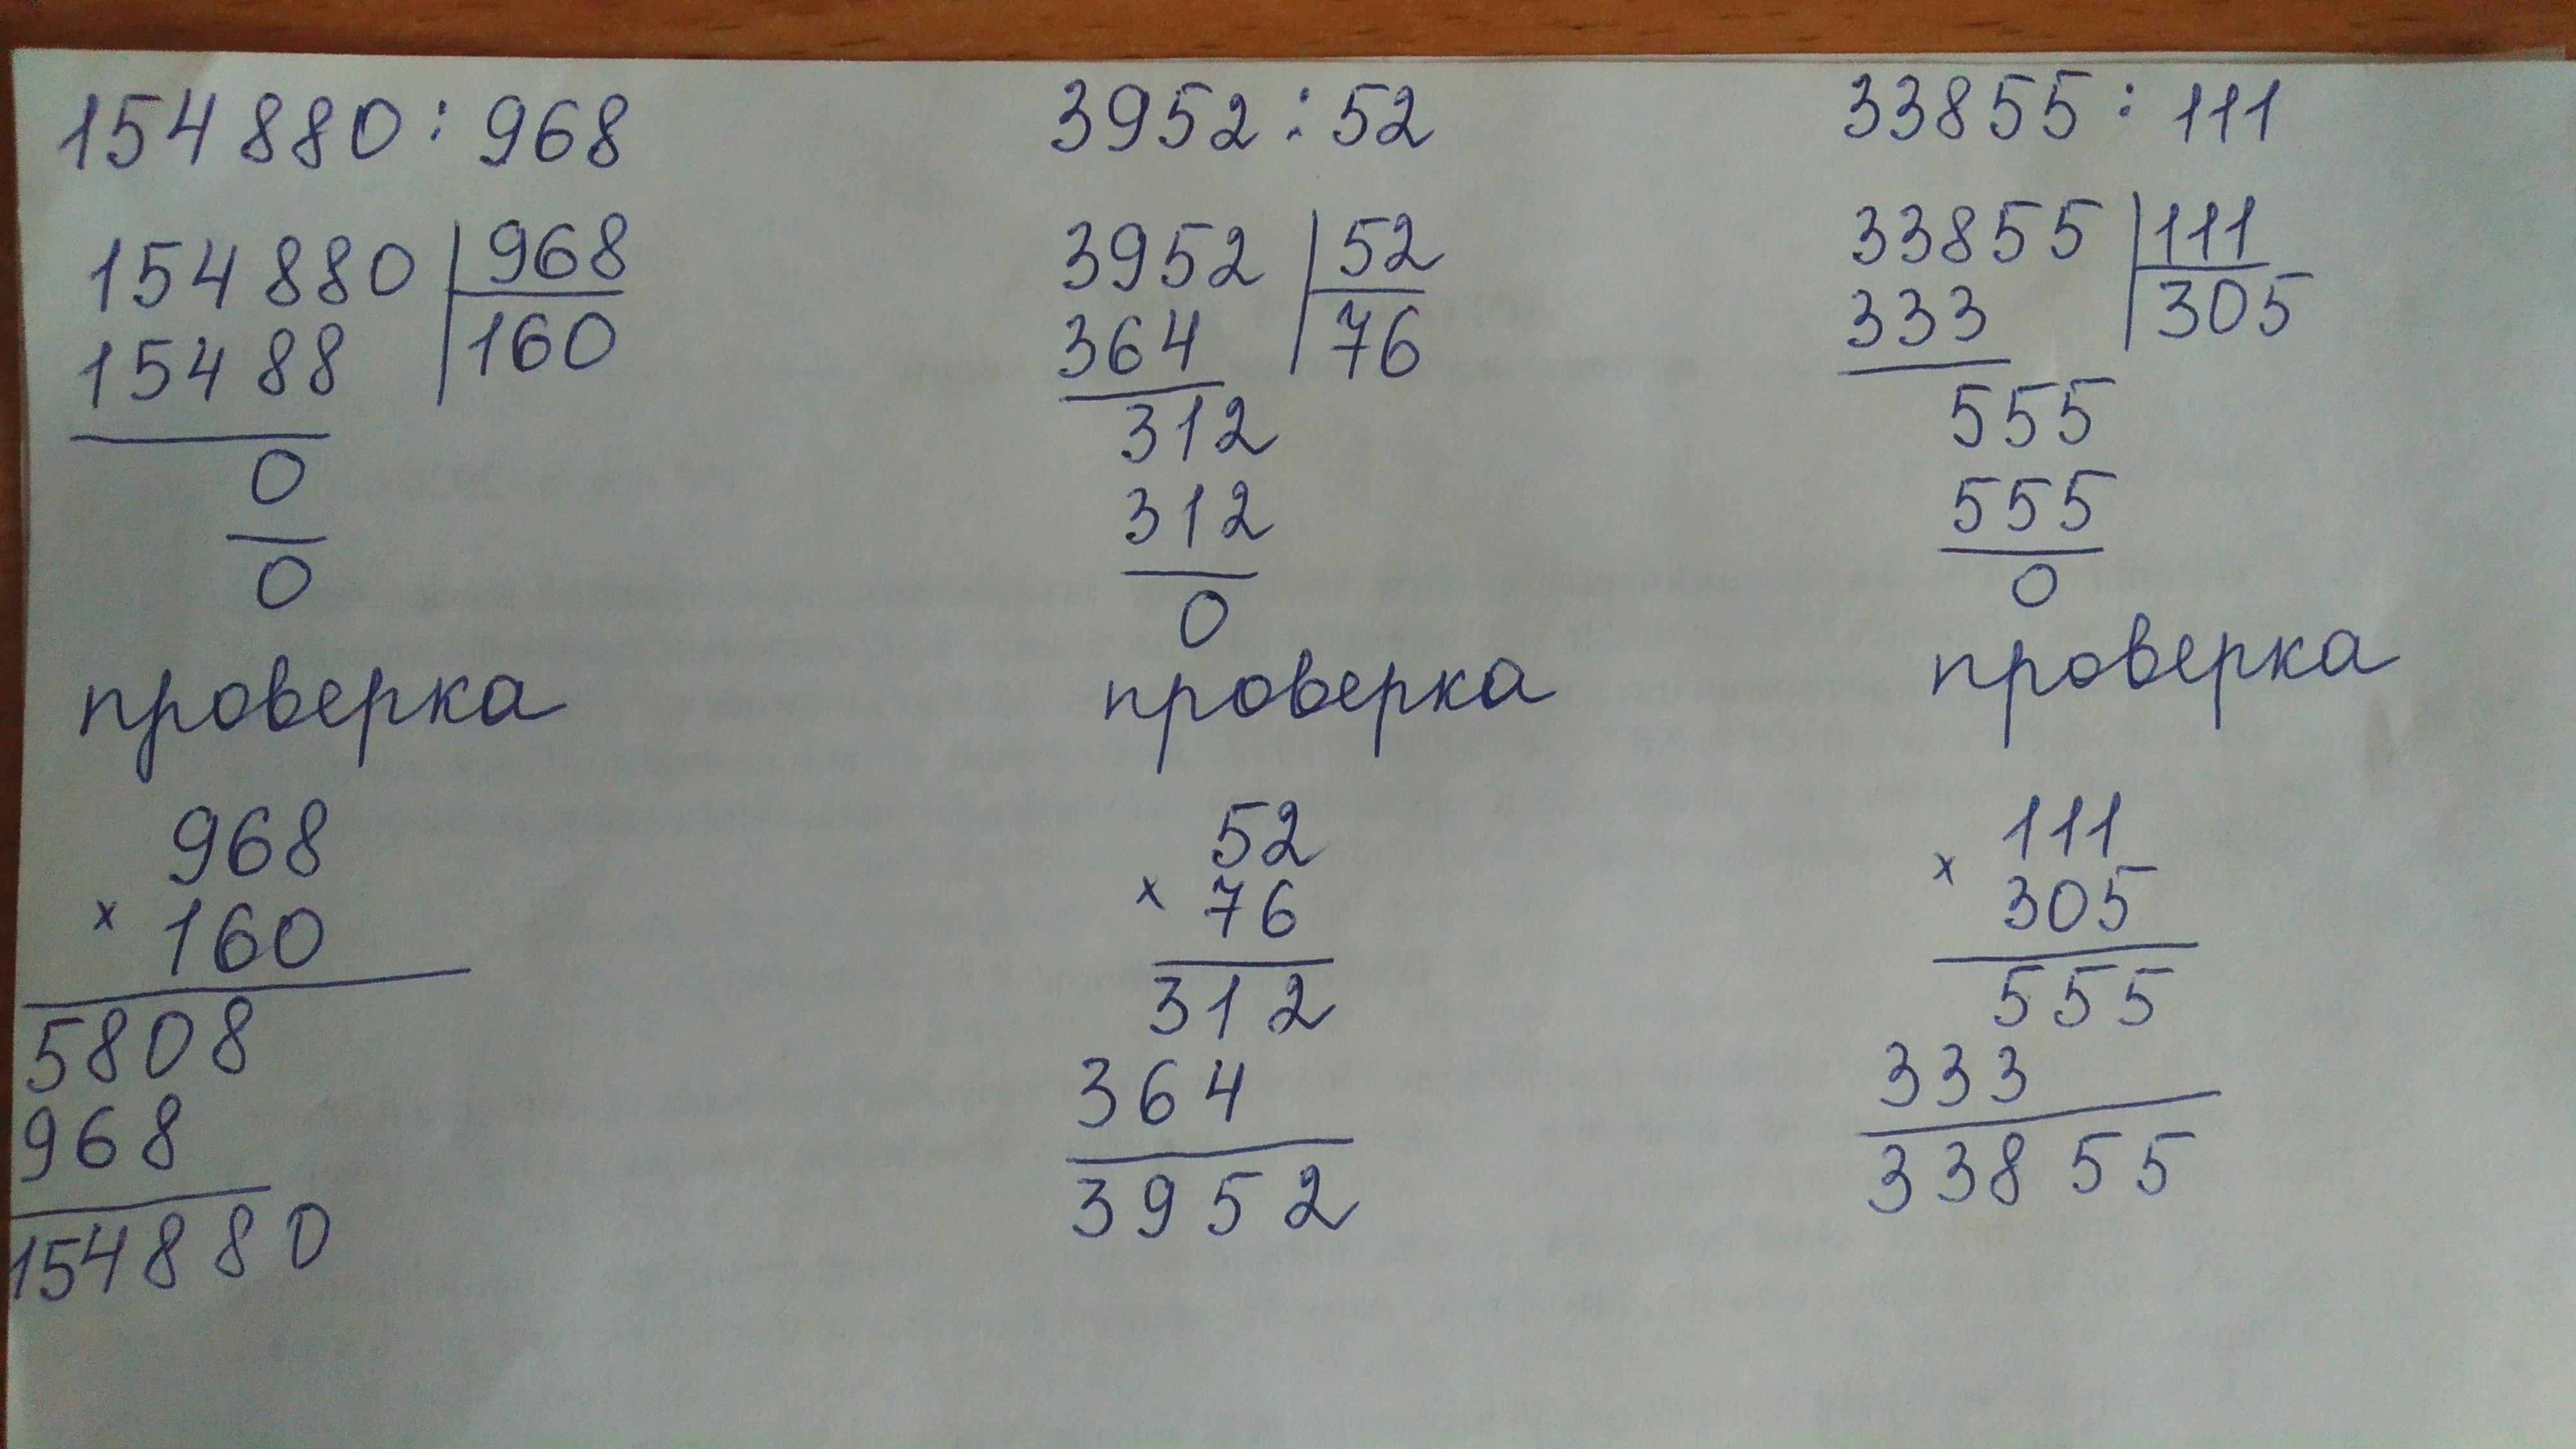 154880 : 968
154880 | 968
15488 | 160
0
0
проверка
968
× 160
5808
968
154880
3952 : 52
3952 | 52
364 | 76
312
312
0
проверка
52
× 76
312
364
3952
33855 : 111
33855 | 111
333 | 305
555
555
0
проверка
111
× 305
555
333
33855